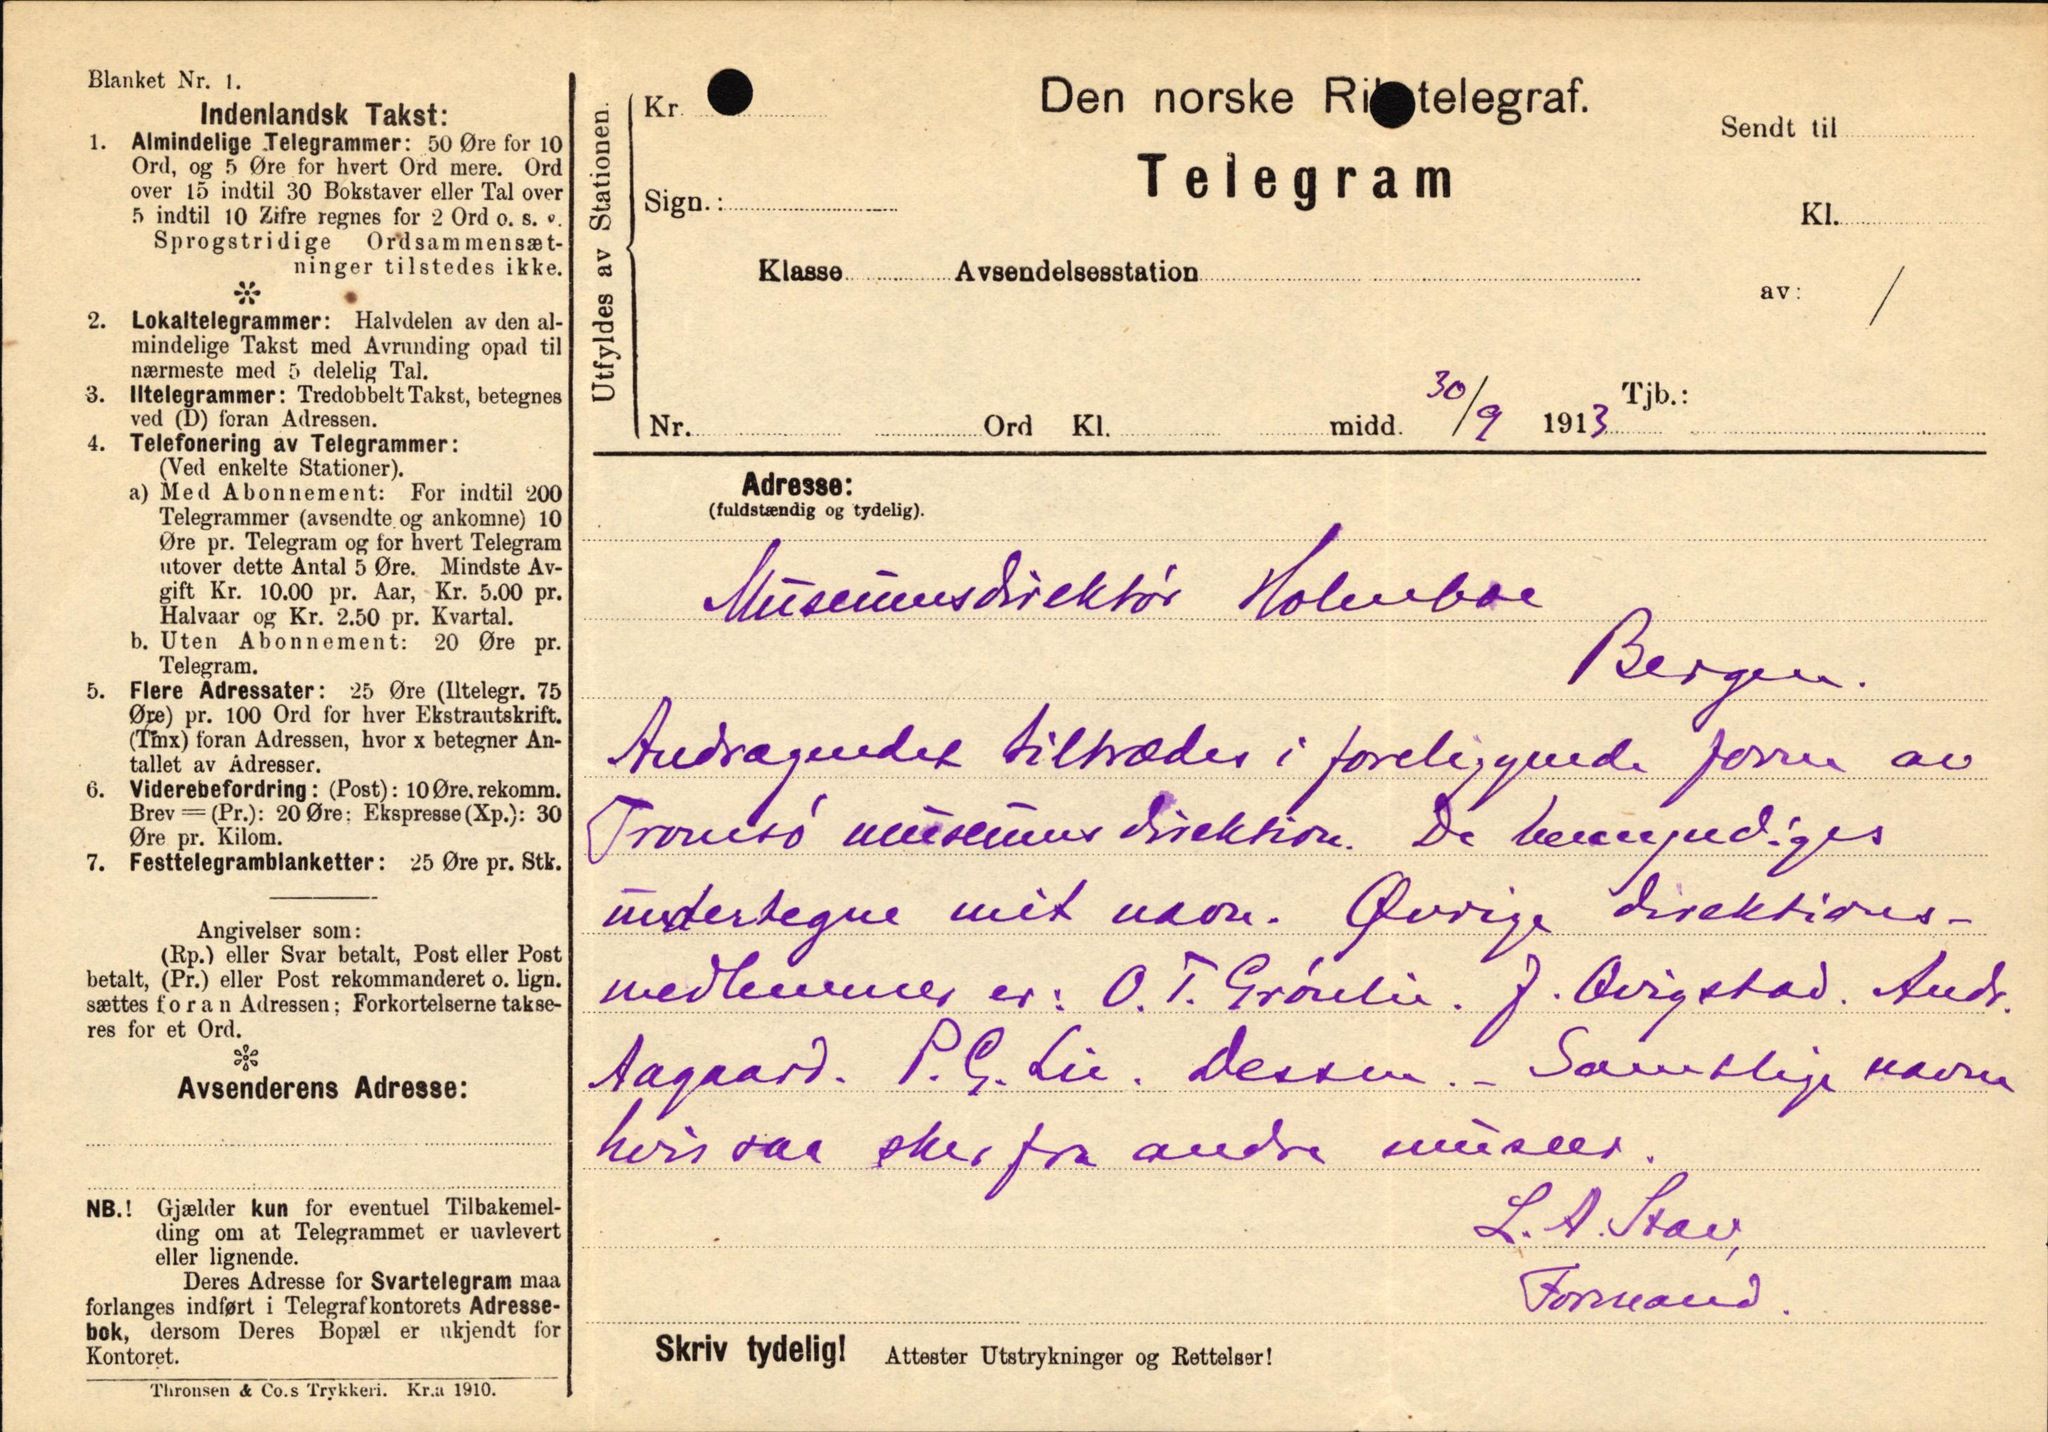 Blanket Nr. 1.
Indenlandsk Takst:
1. Almindelige Telegrammer: 50 Øre for 10
Ord, og 5 Øre for hvert Ord mere. Ord
over 15 indtil 30 Bokstaver eller Tal over
5 indtil 10 Zifre regnes for 2 Ord o. s. v.
Sprogstridige Ordsammensæt-
ninger tilstedes ikke.
2. Lokaltelegrammer: Halvdelen av den al-
mindelige Takst med Avrunding opad til
nærmeste med 5 delelig Tal.
3. Iltelegrammer: Tredobbelt Takst, betegnes
ved (D) foran Adressen.
4. Telefonering av Telegrammer:
(Ved enkelte Stationer).
a) Med Abonnement: For indtil 200
Telegrammer (avsendte og ankomne) 10
Øre pr. Telegram og for hvert Telegram
utover dette Antal 5 Øre. Mindste Av-
gift Kr. 10.00 pr. Aar, Kr. 5.00 pr.
Halvaar og Kr. 2.50 pr. Kvartal.
b. Uten Abonnement: 20 Øre pr.
Telegram.
5. Flere Adressater: 25 Øre (Iltelegr. 75
Øre) pr. 100 Ord for hver Ekstrautskrift.
(Tmx) foran Adressen, hvor x betegner An-
tallet av Adresser.
6. Viderebefordring: (Post): 10 Øre. rekomm.
Brev = (Pr.): 20 Øre; Ekspresse (Xp.): 30
Øre pr. Kilom.
7. Festtelegramblanketter: 25 Øre pr. Stk.
Angivelser som:
(Rp.) eller Svar betalt, Post eller Post
betalt, (Pr.) eller Post rekommanderet o. lign.
sættes foran Adressen; Forkortelserne takse-
res for et Ord.
Avsenderens Adresse:
NB.! Gjælder kun for eventuel Tilbakemel-
ding om at Telegrammet er uavlevert
eller lignende.
Deres Adresse for Svartelegram maa
forlanges indført i Telegrafkontorets Adresse-
bok, dersom Deres Bopæl er ukjendt for
Kontoret.
Thronsen & Co.s Trykkeri. Kr.a 1910.
Utfyldes av Stationen.
Kr
Sign.:
Den norske Rikstelegraf.
Telegram
Sendt til
Kl.
Klasse Avsendelsesstation
av: /
Nr. Ord Kl. midd. 30/9 1913 Tjb.:
Adresse:
(fuldstændig og tydelig).
Museumsdirektør Holmboe
Bergen.
Andragendet tiltrædes i foreliggende form av
Tromsø museumsdirektion. De bemyndiges
undertegne mit navn. Øvrige direktions-
medlemmer er: O. T. Grønlie. J. Qvigstad. Andr.
Aagaard. P. G. Lie. Dessen. - Samtlige navne
hvis saa sker fra andre museer.
L. A. Stav,
Formand.
Skriv tydelig! Attester Utstrykninger og Rettelser!